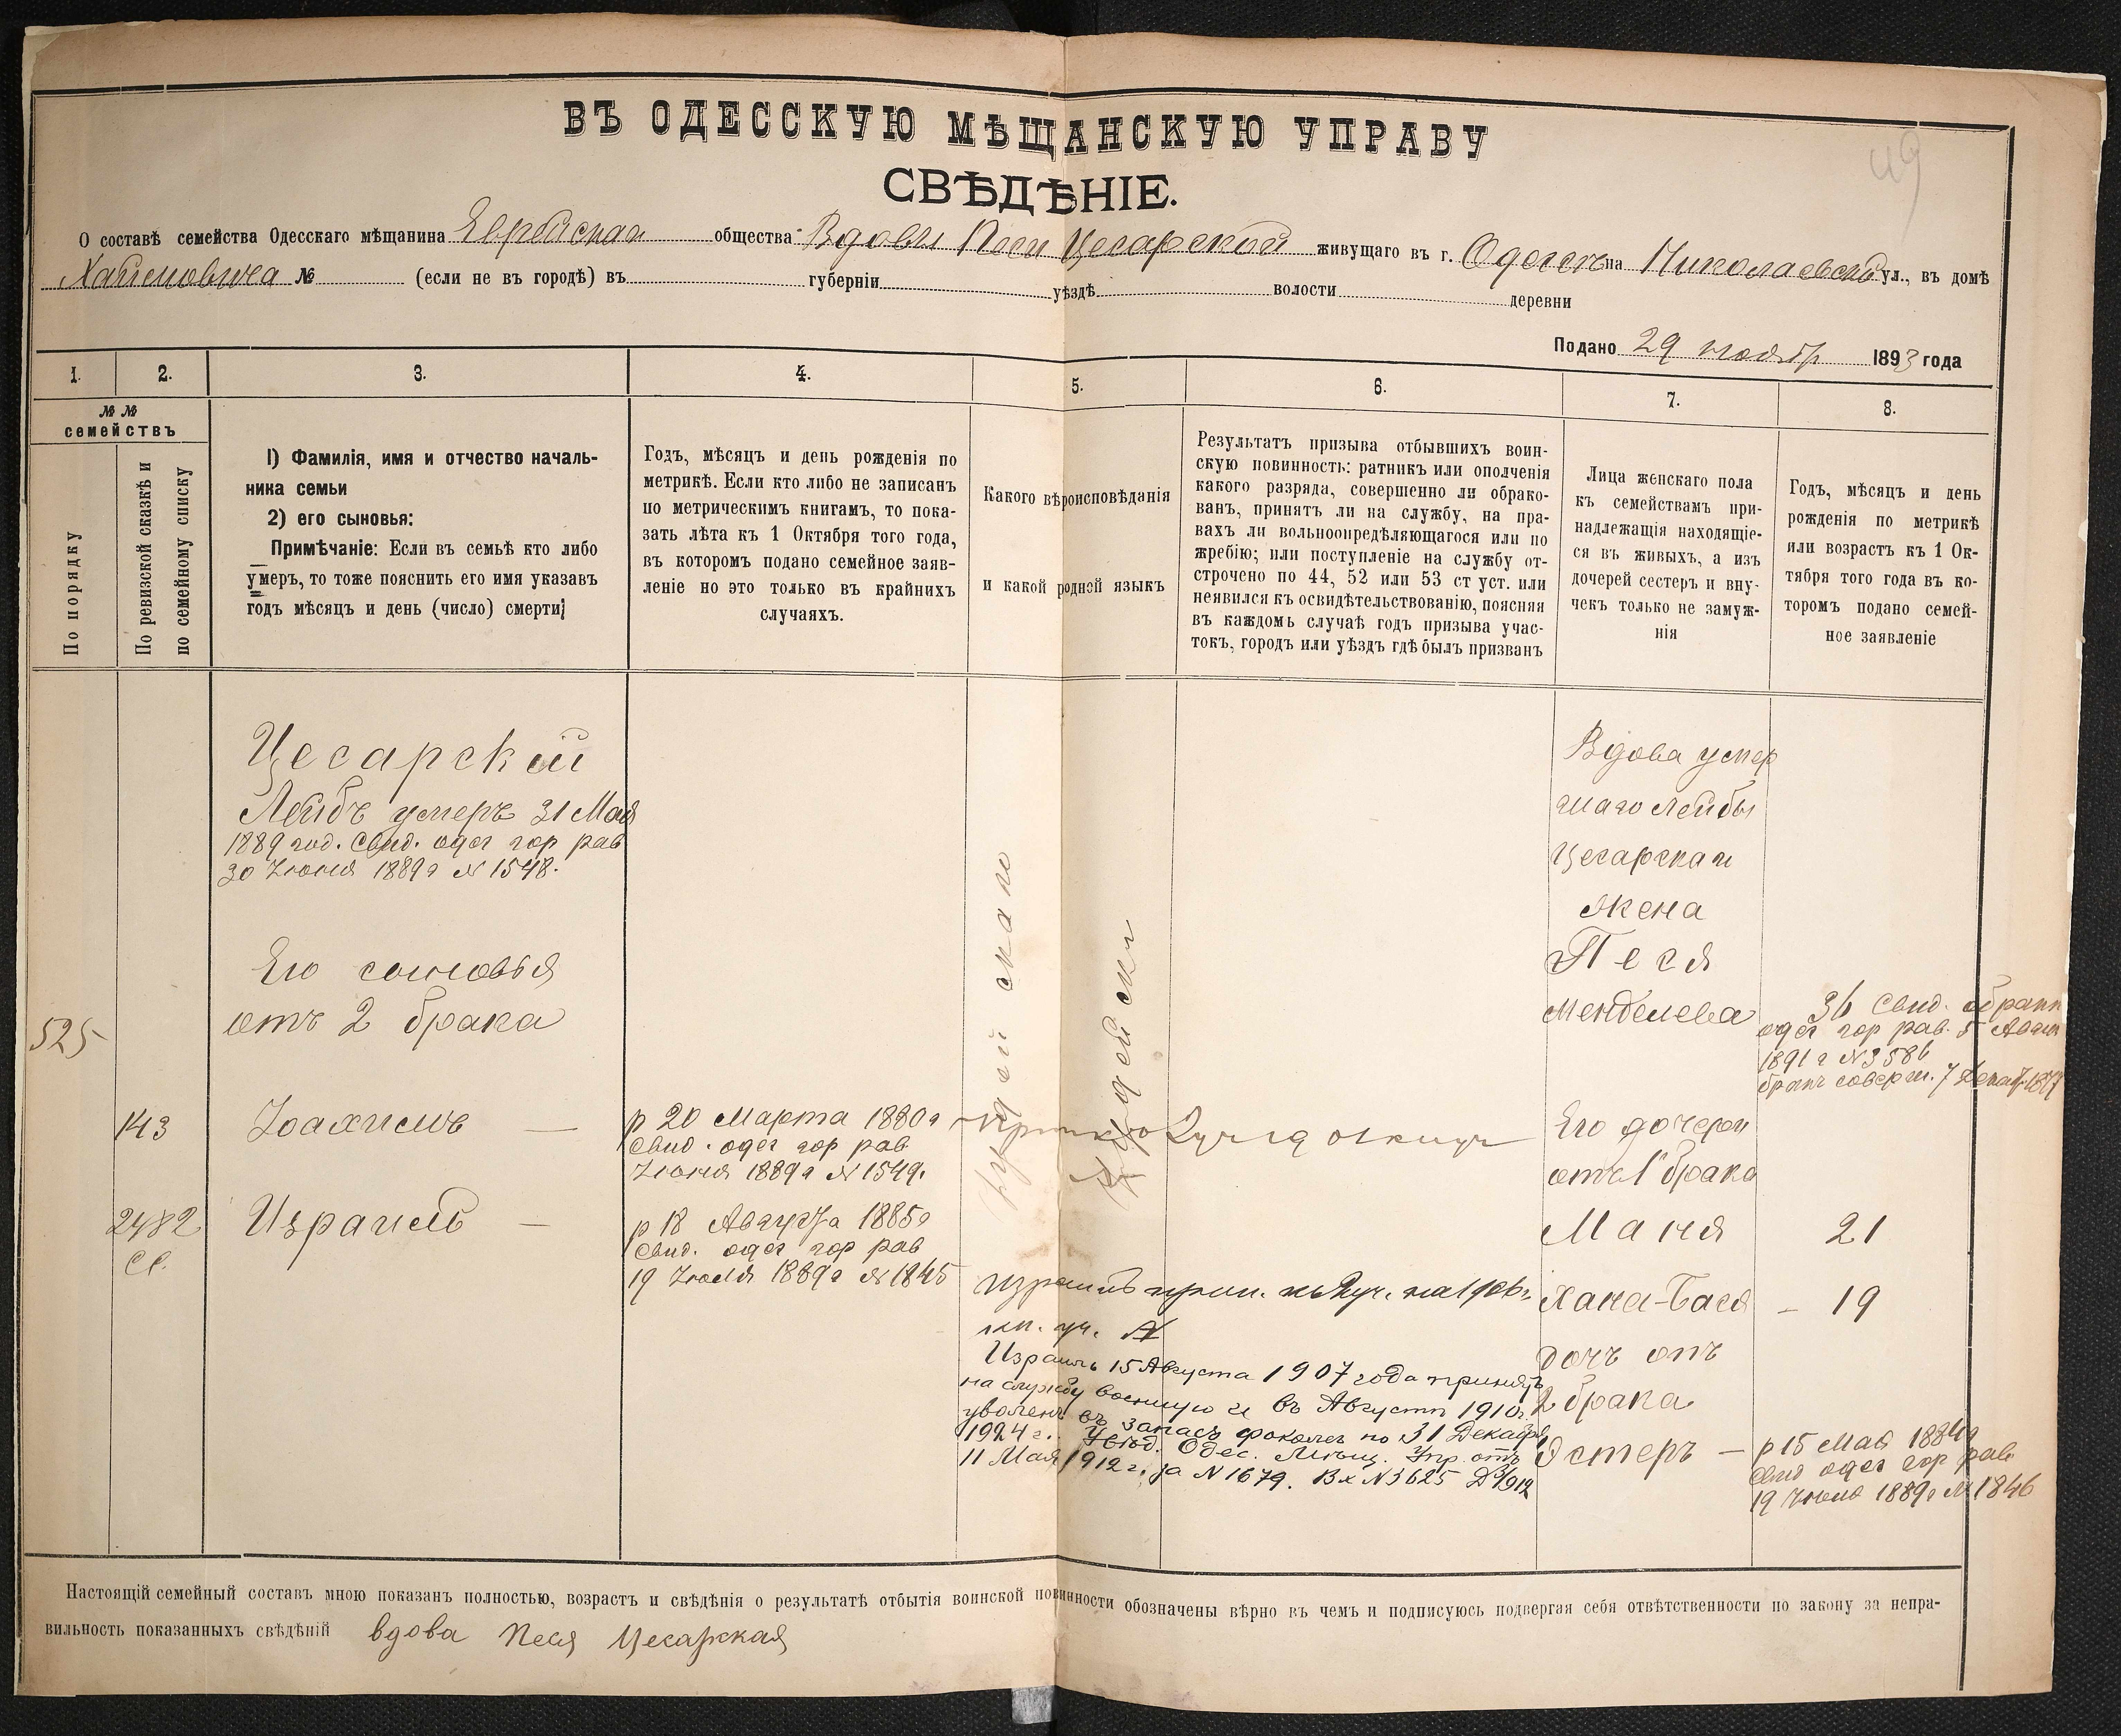 49
ВЪ ОДЕССКУЮ МѢЩАНСКУЮ УПРАВУ
СВѢДѢНІЕ.
О составѣ семейства Одесскаго мѣщанина Еврейскаго общества Вдовы Песи Цесарской живущаго въ г. Одессѣ на Николаевской ул., въ домѣ
Хаимовича № (если не въ городѣ) въ губерніи уѣздѣ волости деревни
Подано 29 ноября 1893 года
1. 2. 3. 4. 5. 6. 7. 8.
№ №
семействъ
По порядку
По ревизской сказкѣ и
по семейному списку
1) Фамилія, имя и отчество началь-
ника семьи
2) его сыновья:
Примѣчаніе: Если въ семьѣ кто либо
умеръ, то тоже пояснить его имя указавъ
годъ мѣсяцъ и день (число) смерти;
Годъ, мѣсяцъ и день рожденія по
метрикѣ. Если кто либо не записанъ
по метрическимъ книгамъ, то пока-
зать лѣта къ 1 Октября того года,
въ которомъ подано семейное заяв-
леніе но это только въ крайнихъ
случаяхъ.
Какого вѣроисповѣданія
и какой родной языкъ
Результатъ призыва отбывшихъ воин-
скую повинность: ратникъ или ополченія
какого разряда, совершенно ли обрако-
ванъ, принятъ ли на службу, на пра-
вахъ ли вольноопредѣляющагося или по
жребію; или поступленіе на службу от-
строчено по 44, 52 или 53 ст уст. или
неявился къ освидѣтельствованію, поясняя
въ каждомь случаѣ годъ призыва учас-
токъ, городъ или уѣздъ гдѣ былъ призванъ
Лица женскаго пола
къ семействамъ при-
надлежащія находящіе-
ся въ живыхъ, а изъ
дочерей сестеръ и вну-
чекъ только не замуж-
нія
Годъ, мѣсяцъ и день
рожденія по метрикѣ
или возрастъ къ 1 Ок-
тября того года въ ко-
торомъ подано семей-
ное заявленіе
Цесарскій
Лейбъ умеръ 31 Мая
1889 год. Свид. одес гор рав
30 Іюня 1889 г № 1548.
Его сыновья
отъ 2 брака
525
143 Іоахимъ —
р 20 Марта 1880 г
Свид. одес гор рав
Іюня 1889 г № 1549.
2482
Сл.
Израиль —
р 18 Августа 1885 г
Свид. одес гор рав
19 Іюля 1889 г № 1845
Іудейскаго
Еврейскій
Израиль прип. къ уч. на 1906 г.
Израиль 15 Августа 1907 года принятъ
на службу военную и въ Августѣ 1910 г.
уволенъ въ запасъ срокомъ по 31 Декабря
1924 г.. Увѣд. Одес. Мѣщ. Упр. отъ
11 Мая 1912 г. за № 1679. Вх № 3625
Вдова умер
шаго Лейбы
Цесарская
жена
Песя
Менделева
36 Свид. о бракѣ
одес гор рав. 5
1891 г № 3586
бракъ соверш. 7 Декаб. 1877
Его дочери
отъ 1 брака
Маня 21
Хана-Бася – 19
дочь отъ
2 брака
Эстеръ —
р 15 Мая 1884 г
Свид одес гор рав
19 Іюля 1889 г № 1846
Настоящій семейный составъ мною показанъ полностью, возрастъ и свѣдѣнія о результатѣ отбытія воинской повинности обозначены вѣрно въ чемъ и подписуюсь подвергая себя отвѣтственности по закону за непра-
вильность показанныхъ свѣдѣній вдова Песя Цесарская